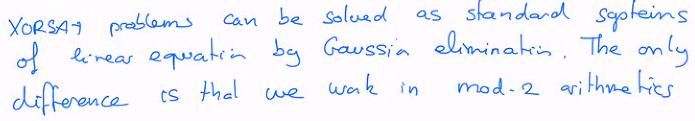 XORSAT problems can be solved as standard systems
of linear equation by Gaussian elimination. The only
difference is that we work in mod-2 arithmetics